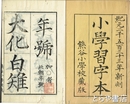 紀元二千五百三十三年新刻
小學習字本
熊谷小學校藏版
年號
大化白雉